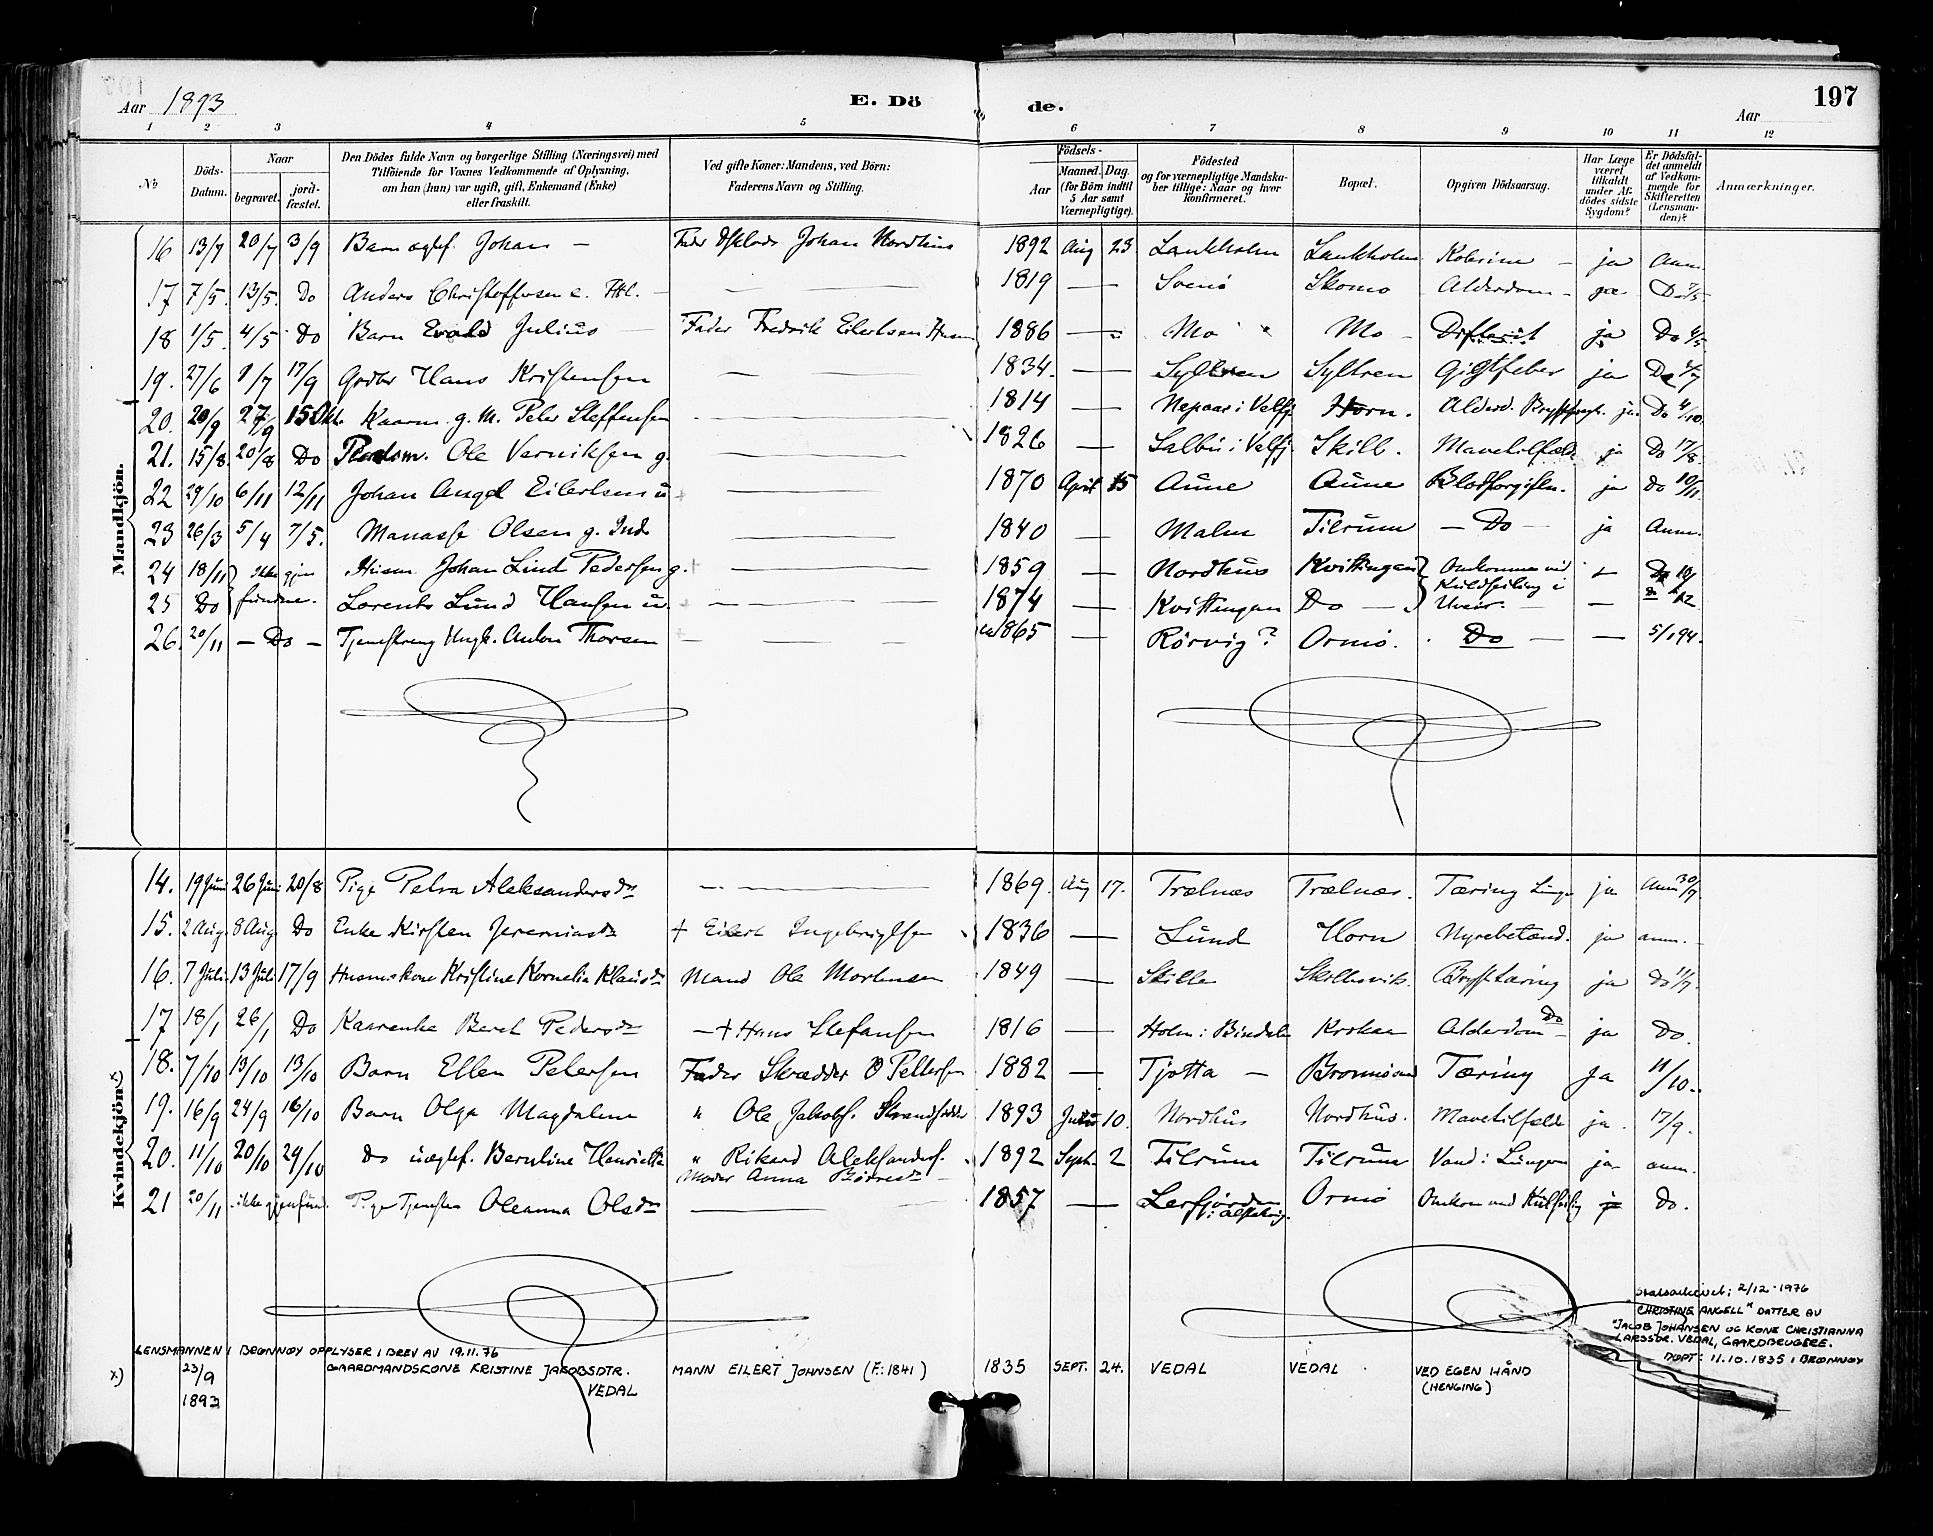 Aar 1893 E. Dö de. Aar 197
1 2 3 4 5 6 7 8 9 10 11 12
No Döds-Datum. Naar begravet. jord-fæstet. Den Dödes fulde Navn og borgerlige Stilling (Næringsvei) med Tilföiende for Voxnes Vedkommende af Oplysning, om han (hun) var ugift, gift, Enkemand (Enke) eller fraskilt. Ved gifte Koner: Mandens, ved Börn: Faderens Navn og Stilling. Födsels- Aar Maaned. Dag. (for Börn indtil 5 Aar samt Værnepligtige). Födested og for værnepligtige Mandska-ber tillige: Naar og hvor konfirmeret. Bopæl. Opgiven Dödsaarsag. Har Læge været tilkaldt under Af-dödes sidste Sygdom? Er Dödsfal-det anmeldt af Vedkom-mende for Skifteretten (Lensman-den)? Anmærkninger.
Mandkjön.
16 13/7 20/7 3/9 Barn Johan – Fader Johan Nordhus 1892 Aug 23 Lankholm Lankholm Kolerine – ja Anm.
17 7/5. 13/5. Do Anders Christoffersen — 1819 — Soenö Skomo Alderdom – ja Do 7/5
18 1/5. 4/5 Do Barn Evald Julius — Fader Fredrik Eilertsen 1886 — Mo Mo – Difterit ja Do 4/5
19. 27/6 1/7 17/9 Hans Kristensen — 1834. — Syltren Syltren Gigtfeber ja Do
20. 20/9 27/9 15 Okt. Kaarm. g. M. Peter Steffensen — 1814 — Nepaas i Velfj. Horn. Alderd. ja Do 4/10.
21. 15/8. 20/8 Do Ole Verniksen g. — 1826 — Salbu i Velfj. Skill. Mavetilfælde ja Do 17/8.
22 29/10 6/11 12/11 Johan Angel Eilertsen u — 1870 April 15 Aune Aune Blodforgiftn. ja Do 10/11
23 26/3 5/4 7/5. Manasse Olsen g. Inds — 1840 — Malm Tilrum — Do — ja Anm.
24 18/11 Ikke gjen Husm. Johan Lind Pedersen g. — 1859 — Nordhus Kvittingen Omkommen ved –
25 Do fundne. Lorents Lund Hansen u. — 1874 — Kvittingen Do — Kuldseiling i Uveir. —
26. 20/11 — Do — Anton Thorsen — 1865 — Rörvig? Ormö. Do — — 5/1 94.
Kvindekjön.
14. 19 Juni 26 Juni 20/8 Pige Petra Aleksandersdr — 1869. Aug 17. Trælnæs Trælnæs. Tæring Lunge ja Anm 30/7.
15. 2 Aug. 8 Aug Do Enke Kirsten Jeremiasdr + Eilert Ingebrigtsen 1836 — Lund Horn Nyrebetænd. ja anm. –
16. 7 Juli 13 Juli 17/9 Husmskone Kristine Kornelia Klausdr Mand Ole Mortensen 1849 — Skille Skillesvik. Brysttæring ja Do 11/7.
17 18/1 26/1 Do Kaarenke Beret Pedersdr – + Hans Stefansen 1816 — Holm i Bindalen Krokan Alderdom Do – ja Do.
18. 7/10 13/10 13/10 Barn Ellen Petersen Fader Skrædder O Pettersen 1882 — Tjøtta – Brønnøsund Tæring Ja 11/10.
19. 16/9 24/9 16/10 Barn Olga Magdalene " Ole Jakobs. 1893 10. Nordhus Nordhus. Mavetilfælde ja. 17/9.
20. 11/10 20/10 29/10 do uægtef. Berntine Henriette " Rikard Aleksanders. 1892 Sept. 2 Tilrum Tilrum Vand i Lungen ja anm.
Moder Anna
21 20/11 ikke gjenfund. Pige Tjenesten Oleanna Olsdr — 1857 — Leirfjorden i Alstahoug. Ormö Omkom ved Kulseiling Do.
Statsarkivet: 2/12-1976
"CHRISTINE ANGELL" DATTER AV
"JACOB JOHANSEN OG KONE CHRISTIANNA
LARSSDR. VEDAL, GAARDBRUGERE.
DØPT: 11.10.1835 I BRØNNØY
LENSMANNEN I BRØNNØY OPPLYSER I BREV AV 19.11.76
x) 23/9 1893 GAARDMANDSKONE KRISTINE JACOBSDTR. VEDAL MANN EILERT JOHNSEN (F: 1841) 1835 SEPT. 24. VEDAL VEDAL VED EGEN HÅND (HENGING)